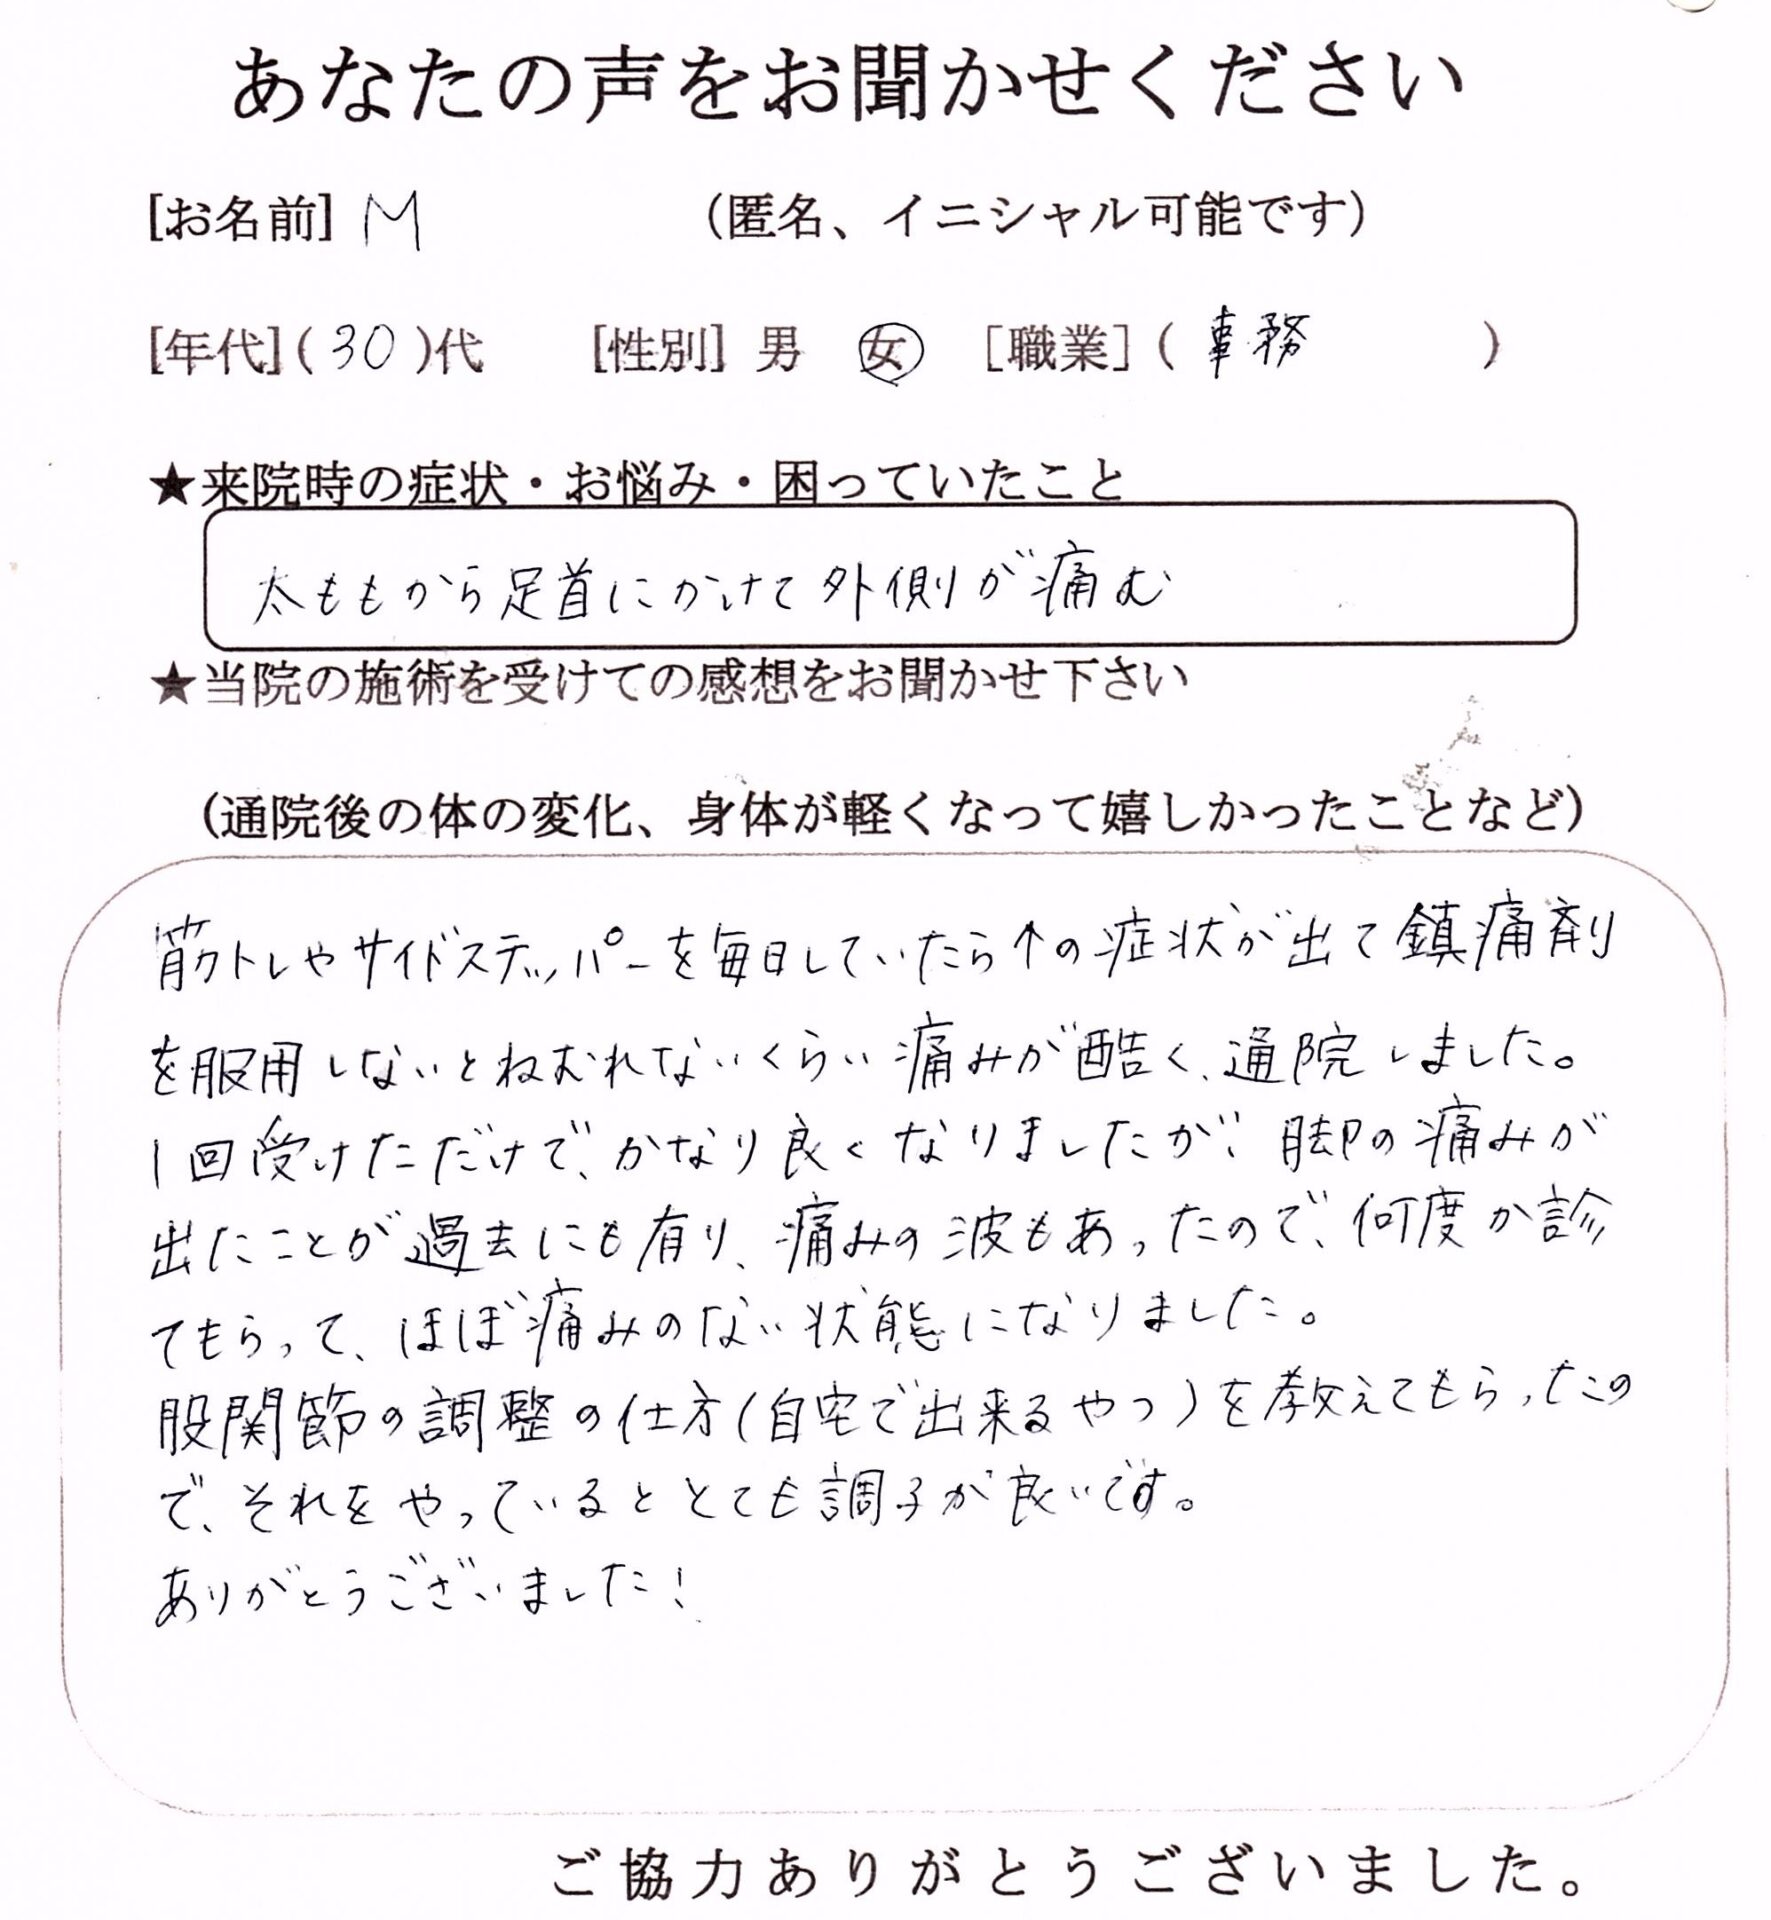 あなたの声をお聞かせください
[お名前] M (匿名、イニシャル可能です)
[年代](30)代 [性別] 男 女 [職業](事務)
★来院時の症状・お悩み・困っていたこと
太ももから足首にかけて外側が痛む
★当院の施術を受けての感想をお聞かせ下さい
(通院後の体の変化、身体が軽くなって嬉しかったことなど)
筋トレやサイドステッパーを毎日していたら↑の症状が出て鎮痛剤
を服用しないとねむれないくらい痛みが酷く、通院しました。
1回受けただけで、かなり良くなりましたが、脚の痛みが
出たことが過去にも有り、痛みの波もあったので、何度か診
てもらって、ほぼ痛みのない状態になりました。
股関節の調整の仕方(自宅で出来るやつ)を教えてもらったの
で、それをやっているととても調子が良いです。
ありがとうございました!
ご協力ありがとうございました。